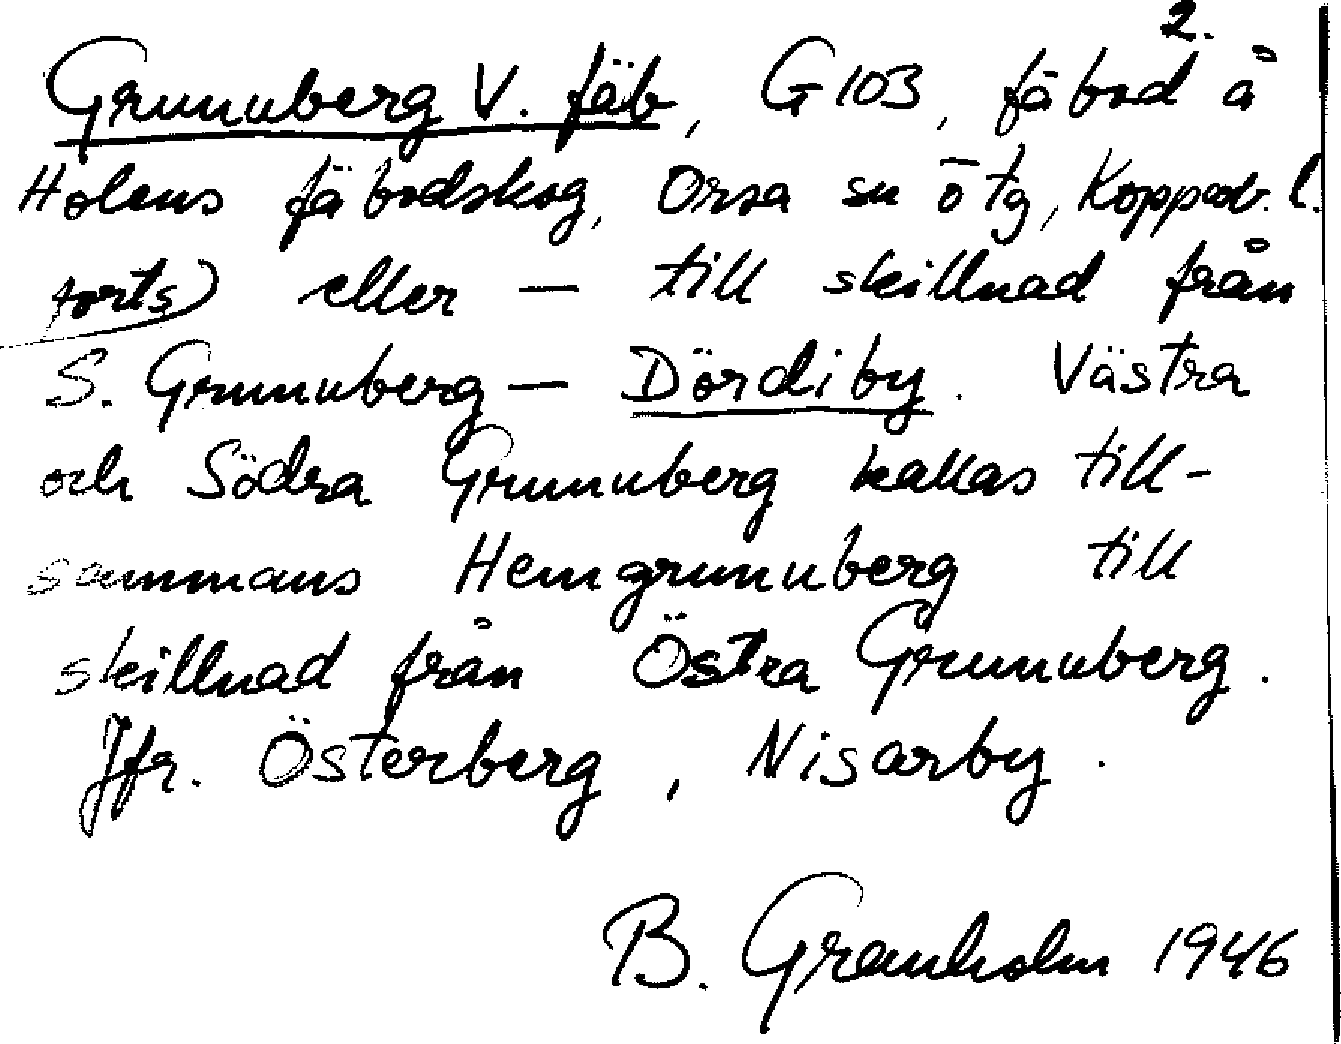 2.
Grunuberg V. fäb, G 103, fäbod å
Holens fäbodskog, Orsa sn ötg, Koppab. l.
forts) eller — till skillnad från
S. Grunuberg — Dördiby. Västra
och Södra Grunuberg kallas till-
sammans Hemgrunuberg till
skillnad från Östra Grunuberg.
Jfr. Österberg, Nisarby.
B. Granholm 1946